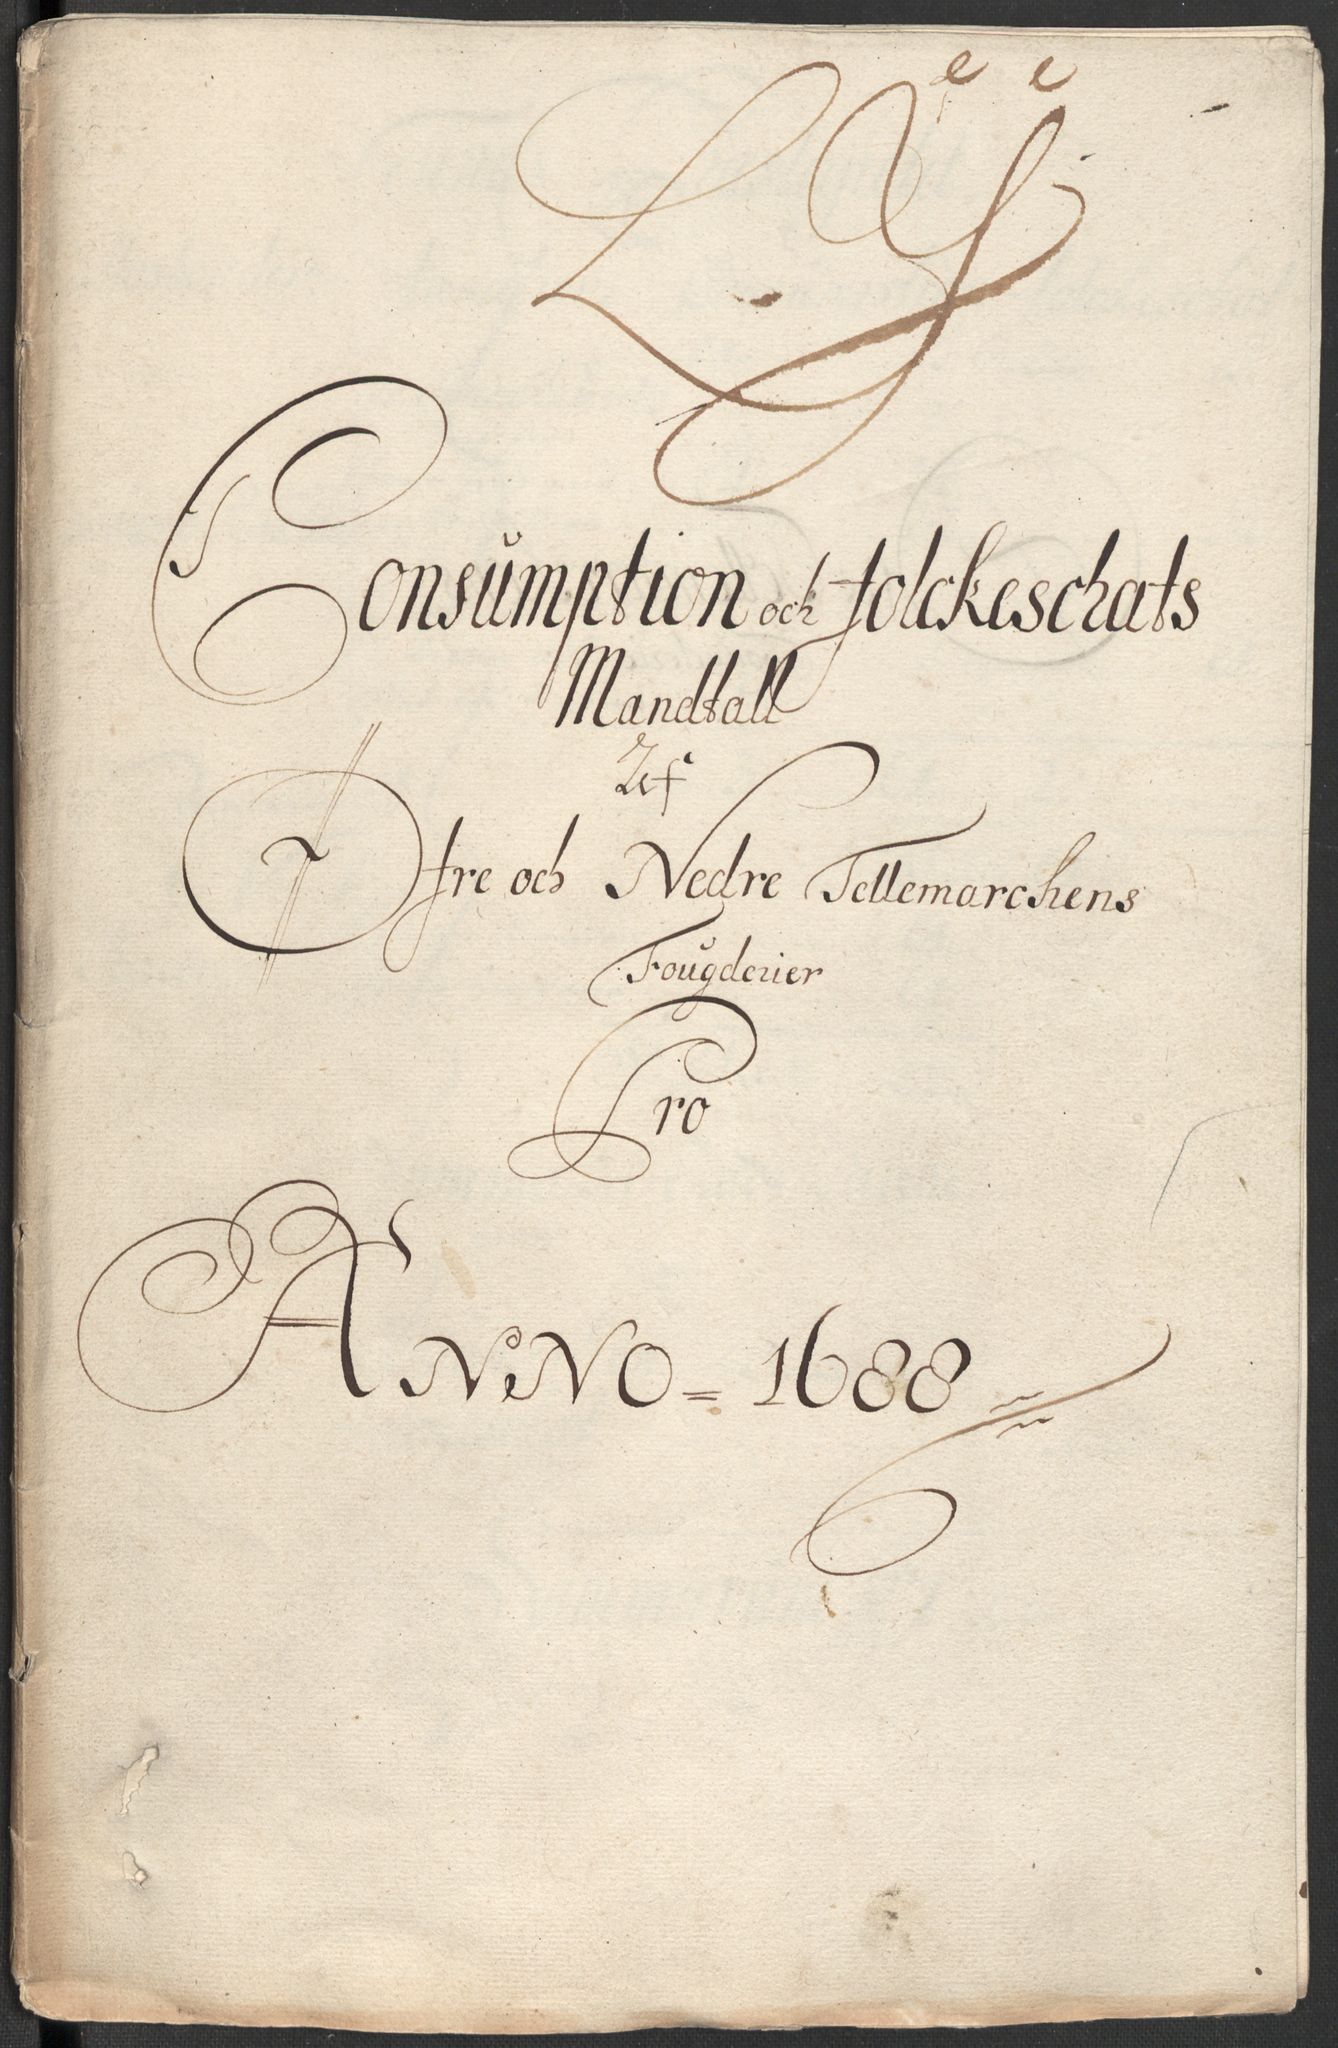 Consumption och folckeschats
Mandtall
Af
Øfre och Nedre Tellemarchens
Fougderier
Pro
ANNO = 1688